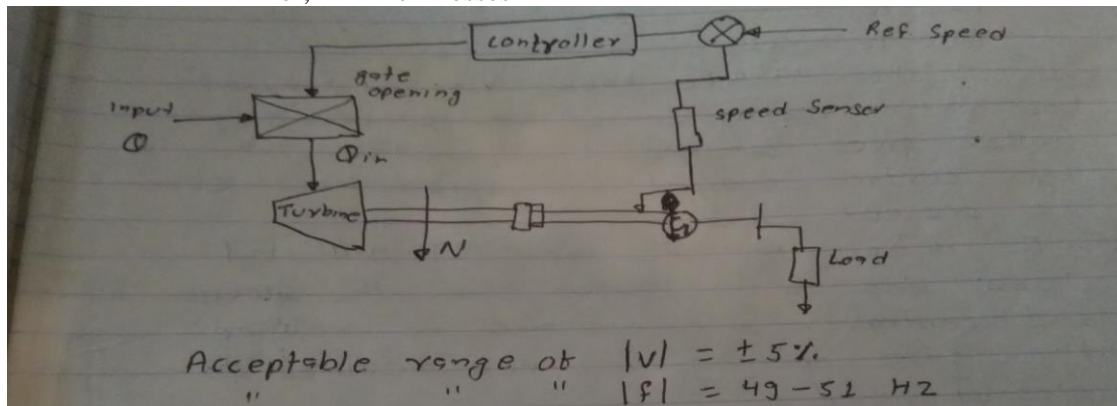 Controller
Ref Speed
gate
opening
input
Q
Speed Sensor
Qin
Turbine
N
G
Load
Acceptable range of |v| = ±5%.
" " " |f| = 49-51 HZ